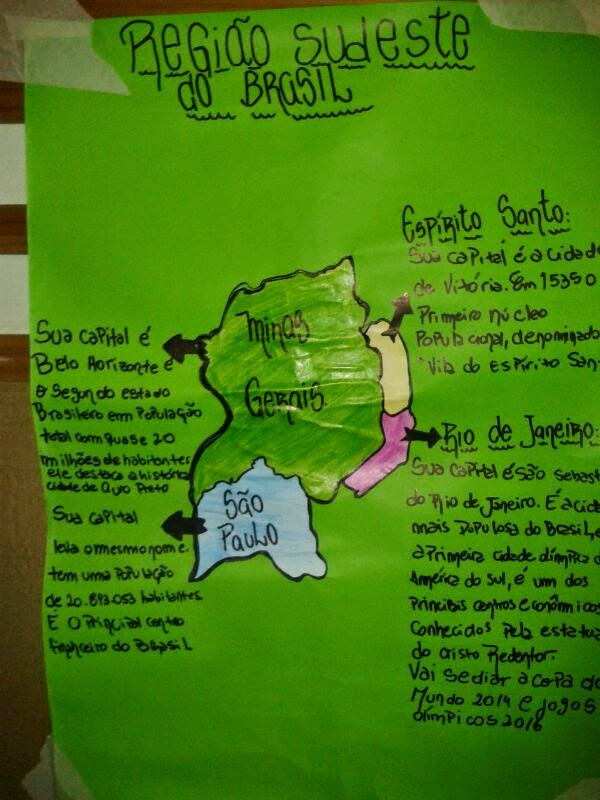 Região Sudeste
do Brasil
Espírito Santo:
Sua capital é a cidade
de Vitória. Em 15350
Primeiro núcleo
Populacional, denominado
"Vila do Espírito San
Minas
Gerais
Sua capital é
Belo Horizonte e
o segundo estado
Brasileiro em População
total com quase 20
milhões de habitantes
ele destaca a histórica
cidade de Ouro Preto
Rio de Janeiro:
Sua capital é são sebast
do Rio de Janeiro. É a cida
mais Populosa do Brasil, e
a Primeira cidade olímpica d
América do Sul, é um dos
Principais centros econômicos
Conhecidos Pela estatua
do cristo Redentor.
Vai sediar a copa do
Mundo 2014 e jogos
olímpicos 2016
São
Paulo
Sua capital
leva o mesmo nome.
tem uma População
de 20.893.053 habitantes
E o Principal centro
financeiro do Brasil